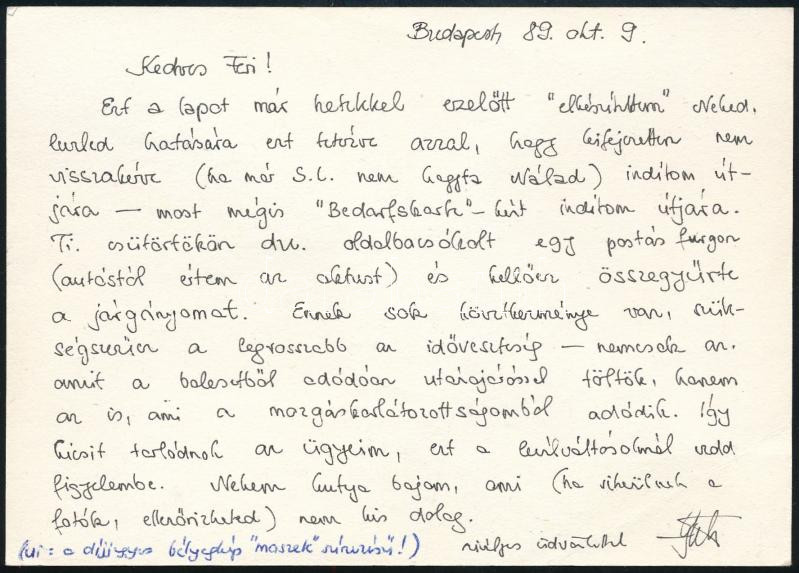 Budapest, 89. okt. 9.
Kedves Feri!
Ezt a lapot már hetekkel ezelőtt "elkészítettem" Neked,
leveled hatására ezt tetézve azzal, hogy kifejezetten nem
visszakérve (ha már S.C. nem hagyta Nálad) indítom út-
jára — most mégis "Bedarfskarte"-ként indítom útjára.
Ti. csütörtökön du. oldalbacsókolt egy postás furgon
(autóstól értem az aktust) és kellően összegyűrte
a járgányomat. Ennek sok következménye van, szük-
ségszerűen a legrosszabb az idővesztesség — nemcsak az,
amit a balesetből adódóan utánajárással töltök, hanem
az is, ami a mozgáskorlátozottságomból adódik. Így
kicsit torlódnak az ügyeim, ezt a levélváltásoknál vedd
figyelembe. Nekem kutya bajom, ami (ha sikerülnek a
fotók, ellenőrizheted) nem kis dolog.
(ui: a díjjegyes bélyegkép "maszek" színezésű!) szívélyes üdvözlettel